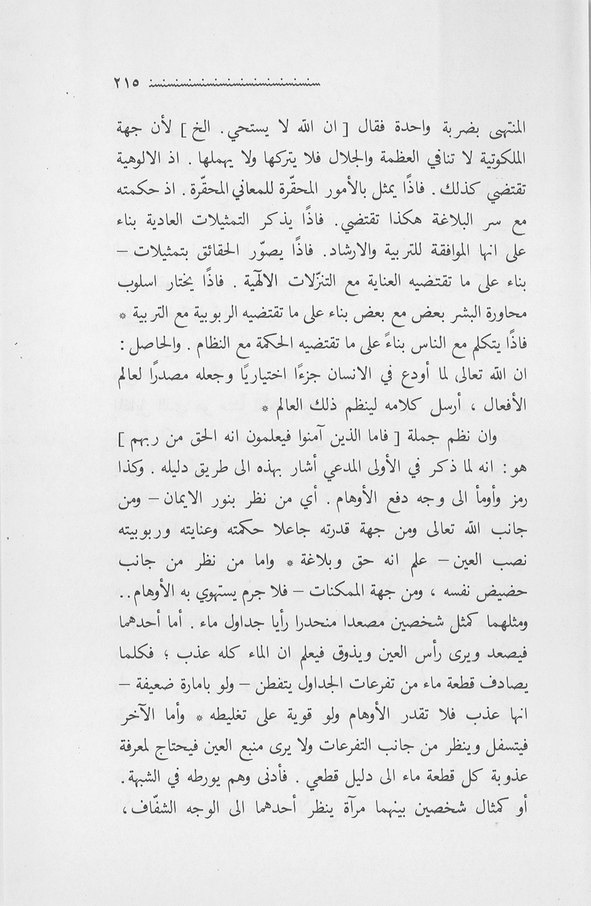 ٢١٥
المنتهى بضربة واحدة فقال [ ان الله لا يستحي. الخ ] لأن جهة
الملكوتية لا تنافي العظمة والجلال فلا يتركها ولا يهملها . اذ الالوهية
تقتضي كذلك . فاذًا يمثل بالأمور المحقّرة للمعاني المحقّرة . اذ حكمته
مع سر البلاغة هكذا تقتضي. فاذًا يذكر التمثيلات العادية بناء
على انها الموافقة للتربية والارشاد. فاذًا يصوّر الحقائق بتمثيلات –
بناء على ما تقتضيه العناية مع التنزّلات الالٓهية . فاذًا يختار اسلوب
محاورة البشر بعض مع بعض بناء على ما تقتضيه الربوبية مع التربية *
فاذًا يتكلم مع الناس بناءً على ما تقتضيه الحكمة مع النظام . والحاصل :
ان الله تعالى لما أودع في الانسان جزءًا اختياريًا وجعله مصدرًا لعالم
الأفعال ، أرسل كلامه لينظم ذلك العالم *
وان نظم جملة [ فاما الذين آمنوا فيعلمون انه الحق من ربهم ]
هو : انه لما ذكر في الأولى المدعي أشار بهذه الى طريق دليله . وكذا
رمز وأومأ الى وجه دفع الأوهام . أي من نظر بنور الايمان – ومن
جانب الله تعالى ومن جهة قدرته جاعلا حكمته وعنايته وربوبيته
نصب العين – علم انه حق وبلاغة * واما من نظر من جانب
حضيض نفسه ، ومن جهة الممكنات – فلا جرم يستهوي به الأوهام ..
ومثلهما كمثل شخصين مصعدا منحدرا رأيا جداول ماء . أما أحدهما
فيصعد ويرى رأس العين ويذوق فيعلم ان الماء كله عذب ؛ فكلما
يصادف قطعة ماء من تفرعات الجداول يتفطن – ولو بامارة ضعيفة –
انها عذب فلا تقدر الأوهام ولو قوية على تغليطه * وأما الآخر
فيتسفل وينظر من جانب التفرعات ولا يرى منبع العين فيحتاج لمعرفة
عذوبة كل قطعة ماء الى دليل قطعي . فأدنى وهم يورطه في الشبهة .
أو كمثال شخصين بينهما مرآة ينظر أحدهما الى الوجه الشفّاف ،